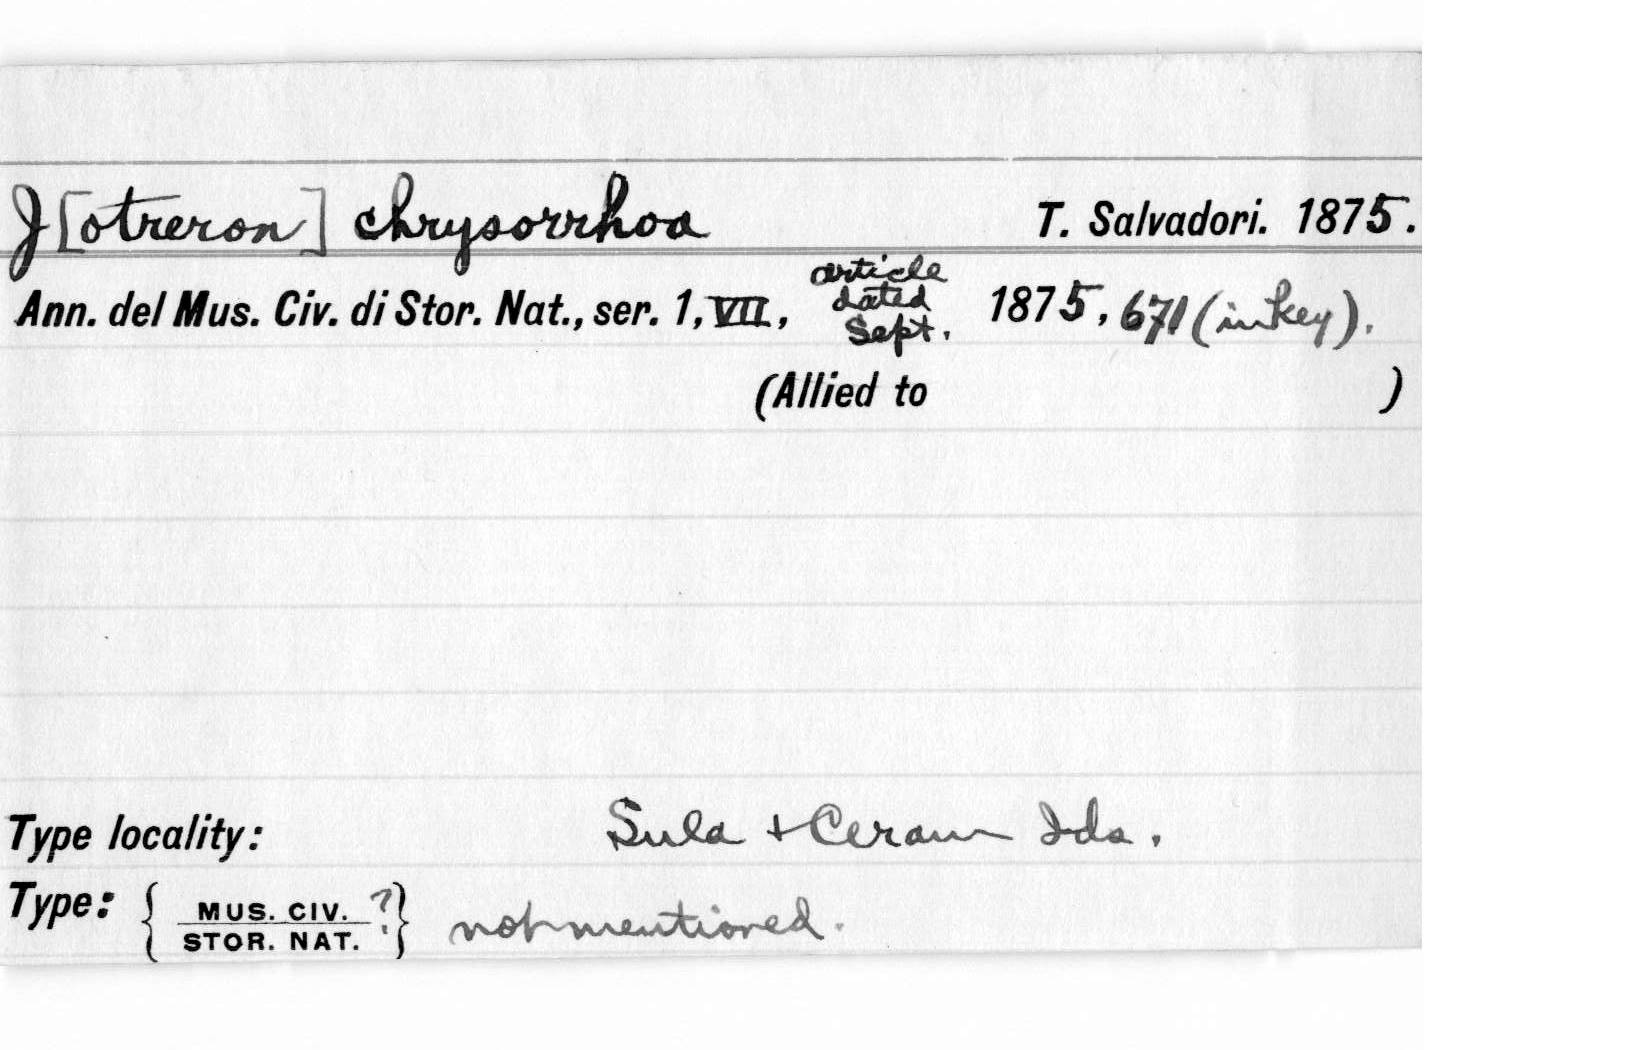 J[otreron] chrysorrhoa T. Salvadori. 1875.
Ann. del Mus. Civ. di Stor. Nat., ser. 1, VII, article dated Sept. 1875, 671 (in key).
(Allied to )
Type locality: Sula + Ceram Ids.
Type: { MUS. CIV. STOR. NAT. ? } not mentioned.